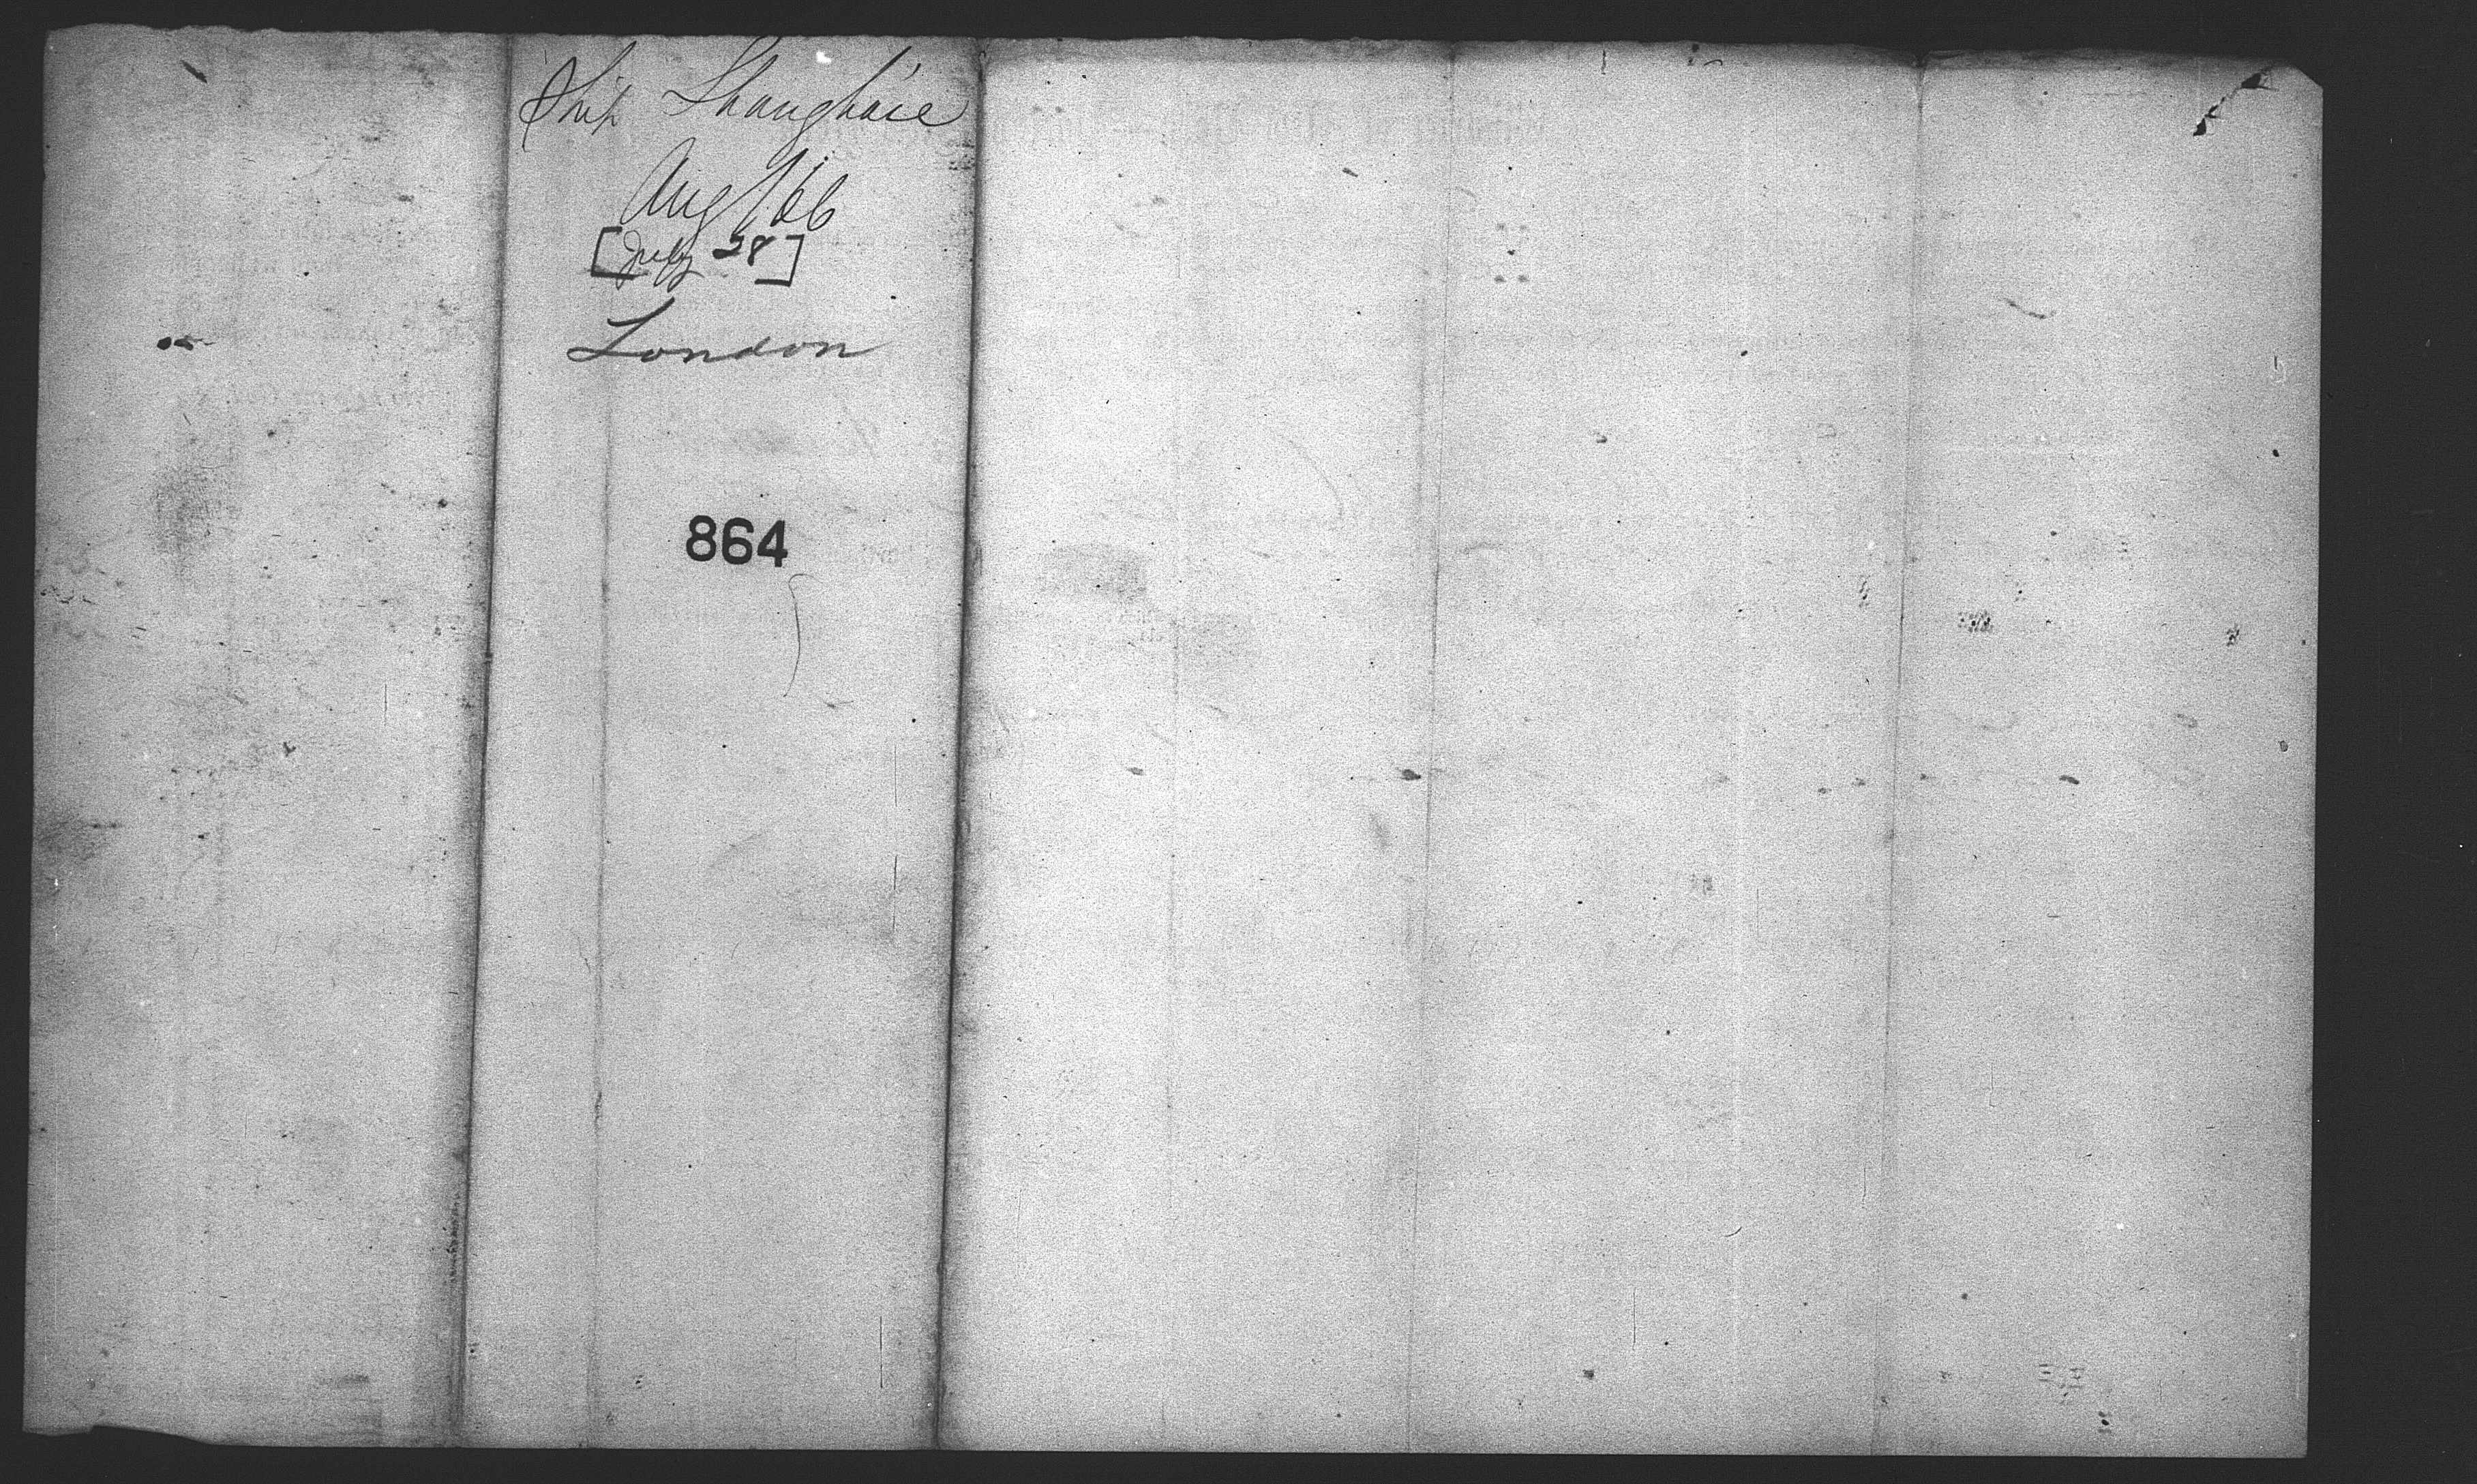 Ship Shanghaie
Aug /66
[July 28]
London
864